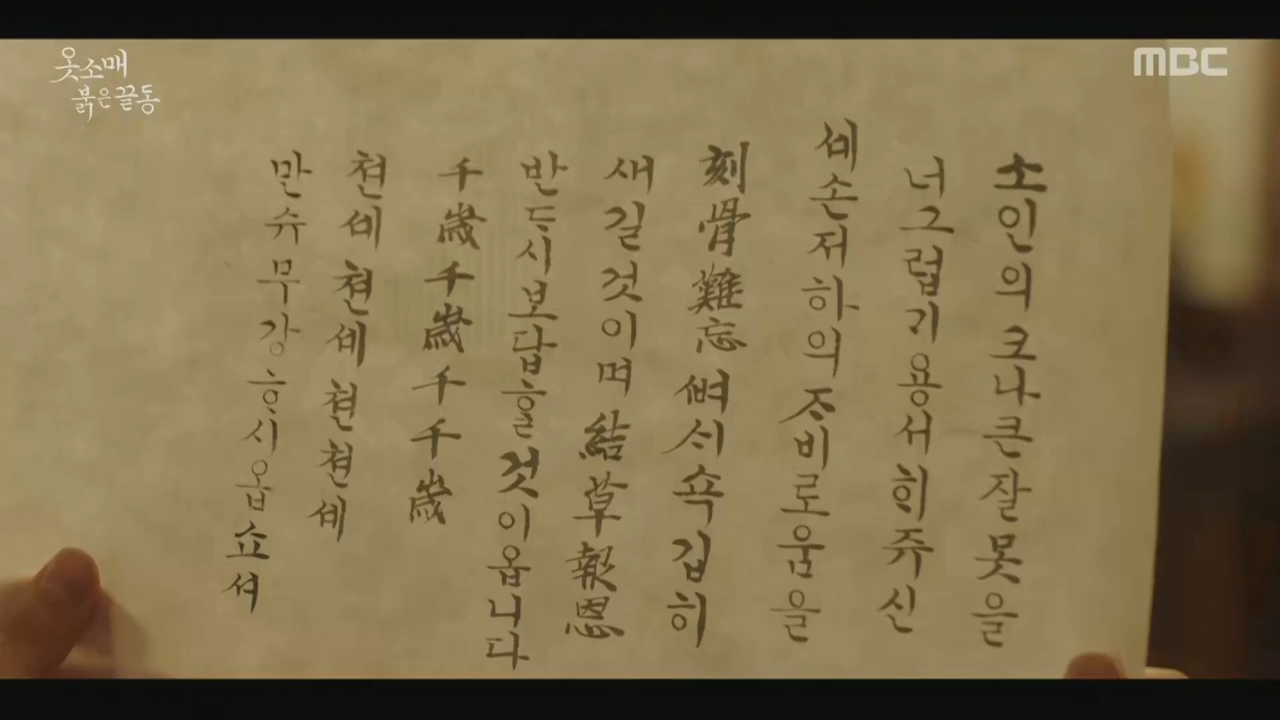 옷소매
붉은 끝동
MBC
소인의 크나큰 잘못을
너그럽기 용서ᄒᆡ 쥬신
셰손저하의 ᄌᆞ비로움을
刻骨難忘 ᄲᅧ쇽 깁히
새길 것이며 結草報恩
반ᄃᆞ시 보답ᄒᆞᆯ 것이옵니다
千歲 千歲 千千歲
쳔셰 쳔셰 쳔쳔셰
만슈무강 ᄒᆞ시옵쇼셔